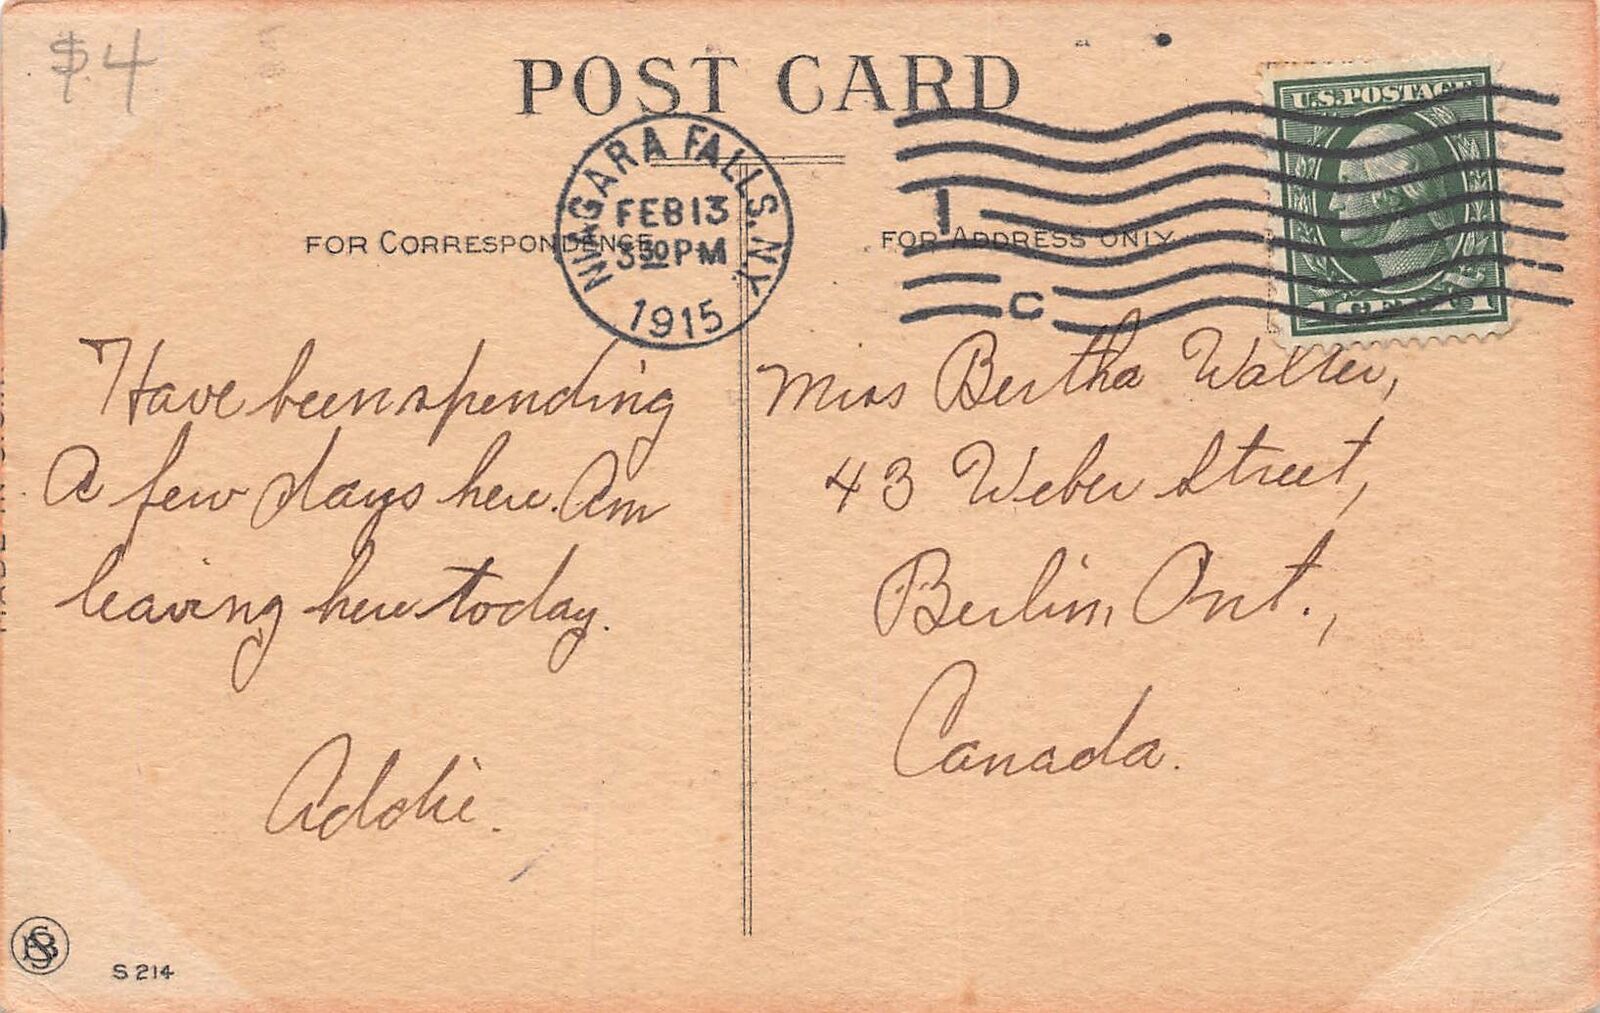 $4
POST CARD
NIAGARA FALLS. N.Y.
FEB 13
3 30 PM
1915
U.S. POSTAGE
1 CENTS 1
1
C
FOR CORRESPONDENCE
FOR ADDRESS ONLY
Have been spending
a few days here. Am
leaving here today.
Addie.
Miss Bertha Walter,
43 Weber Street,
Berlin, Ont.,
Canada.
S 214